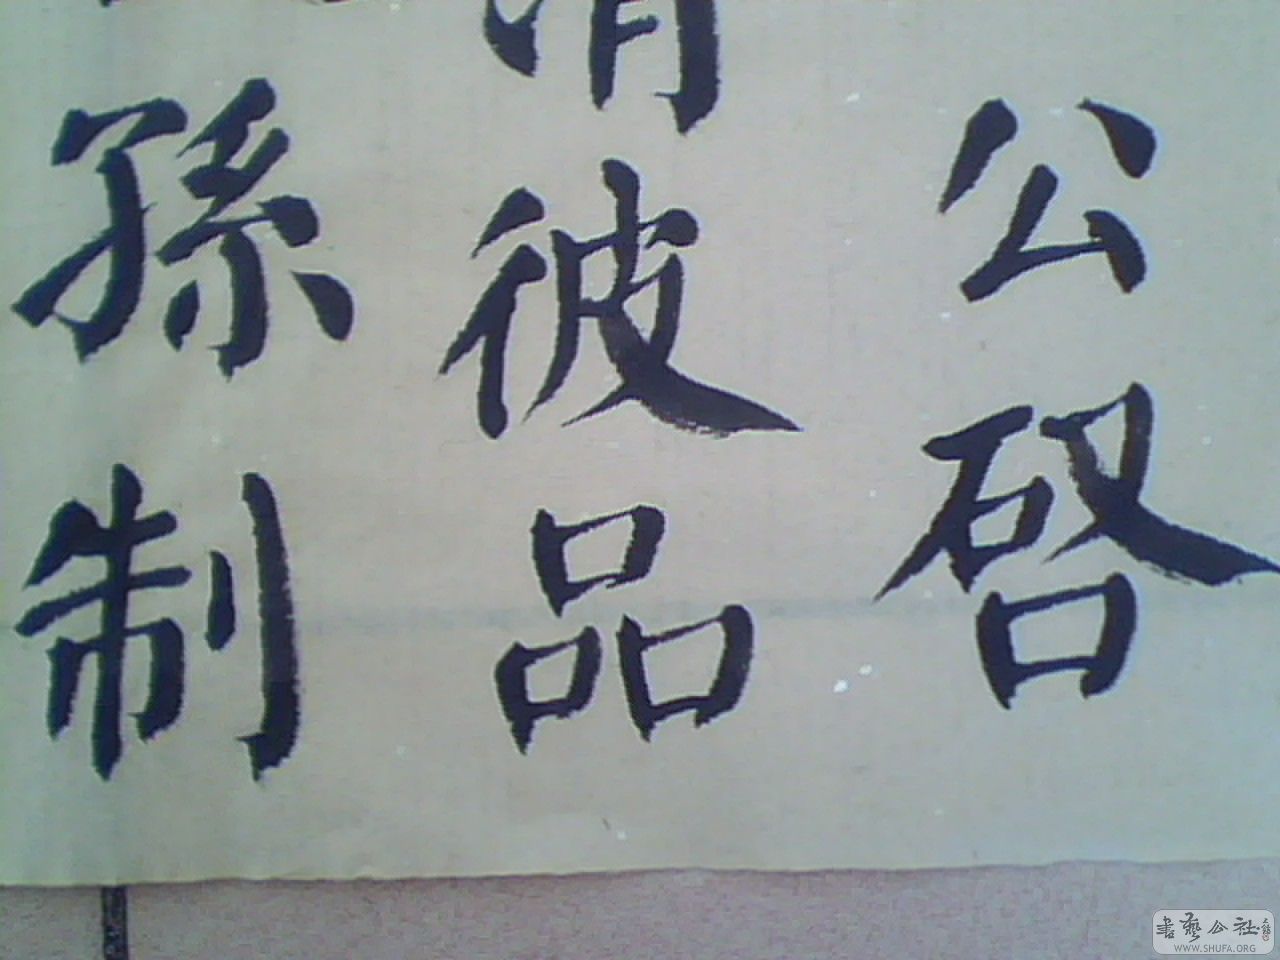 公啓
彼品
孫制
書藝公社
WWW.SHUFA.ORG